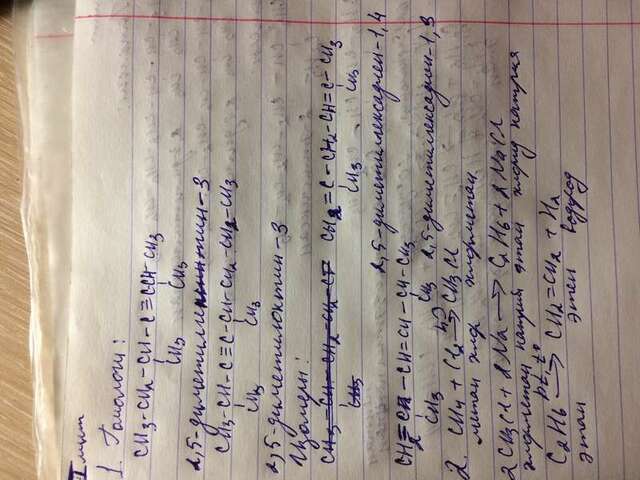 I
1. Гомологи:
CH3-CH2-CH-C≡CCH-CH3
CH3 CH3
2,5-диметил тин-3
CH3-CH-C≡C-CH-CH2-CH2-CH3
CH3 CH3
2,5-диметилоктин-3
Изомеры:
CH2=C-CH2-CH=C-CH3
CH3 CH3
2,5-диметилгексадиен-1,4
CH2=C-CH=CH-CH-CH3
CH3 CH3 2,5-диметилгексадиен-1,3
2. CH4 + Cl2 hν→ CH3Cl
метан хлор хлорметан
2CH3Cl + 2Na → C2H6 + 2NaCl
хлорметан натрий этан хлорид натрия
C2H6 pt, t°→ CH2=CH2 + H2
этан этен водород